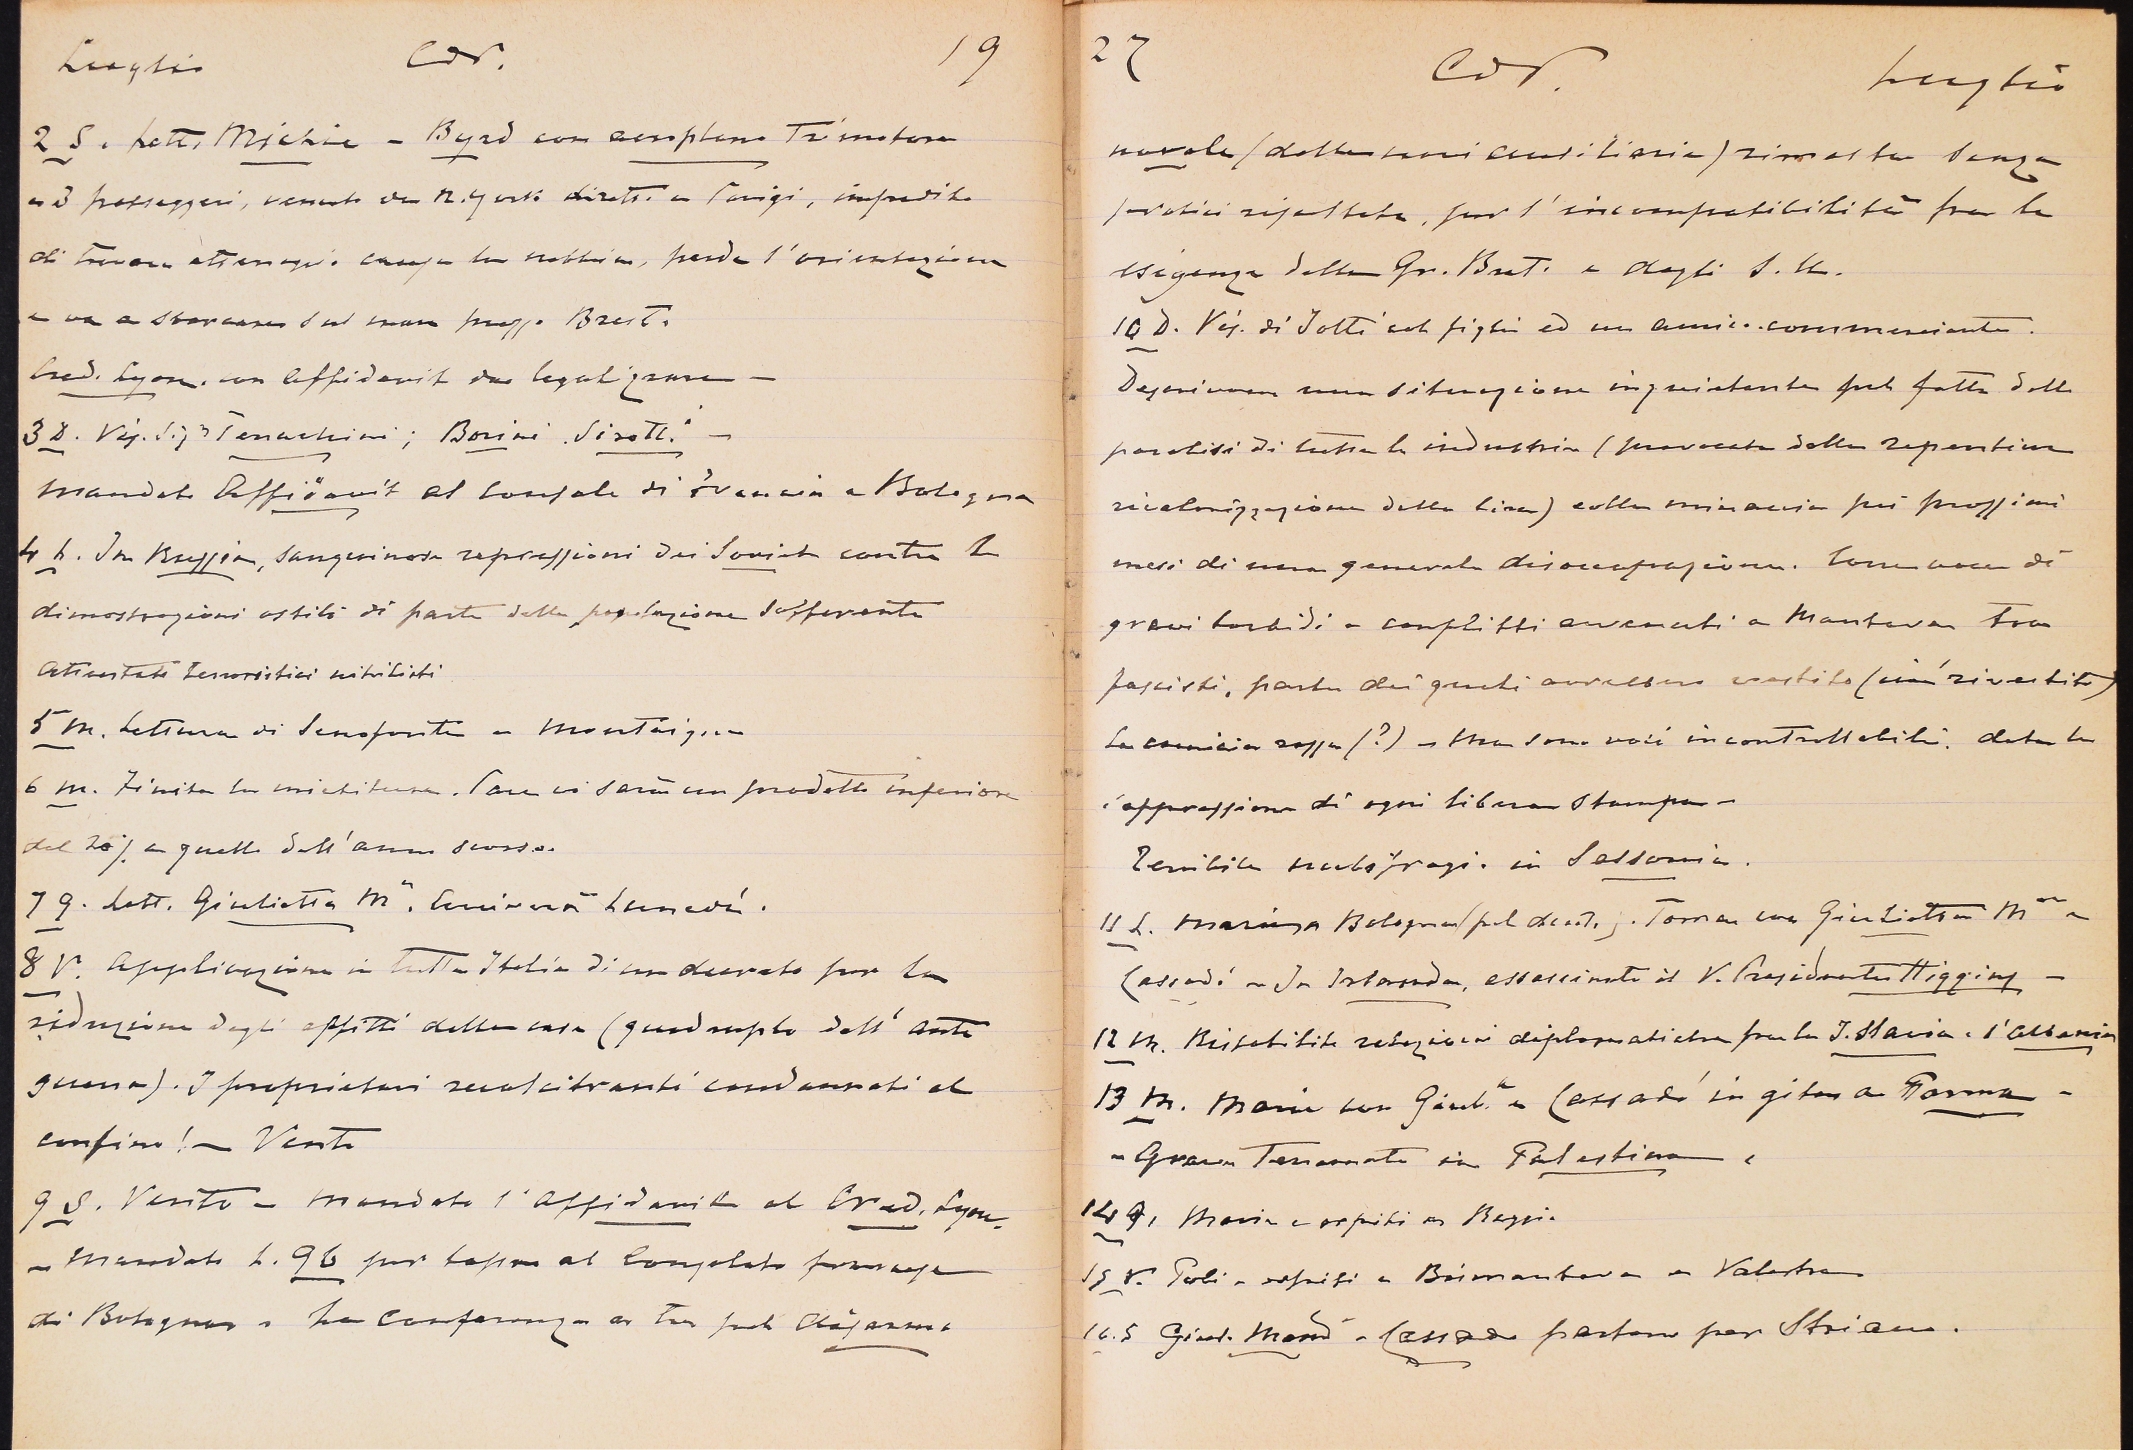 Luglio CdP. 19
2 S. Lett. Michie – Byrd con aeroplano Trimotore
e 3 passeggeri, venuto da N. York dirett. a Parigi, impedito
di trovare atterragio causa la nebbia, perde l'orientazione
e va a sbarcare sul mare presso Brest.
Cred. Lyon. con Affidavit da legalizzare –
3 D. Vis. Sig.ri Terrachini; Borini –
Mandato Affidavit al Console di Francia a Bologna
4 L. In Russia, sanguinose repressioni dei Soviet contro le
dimostrazioni ostili di parte della popolazione sofferente
Attentati terroristici nihilisti
5 M. Lettura di Senofonte e Montaigne
6 M. Finita la mietitura. Pare vi sarà un prodotto inferiore
del 20% a quello dell'anno scorso.
7 G. Lett. Giulietta M. Arriverà Lunedì.
8 V. Applicazione in tutta Italia di un decreto per la
riduzione degli affitti delle case (quadruplo dell'ante
guerra). I proprietari recalcitranti condannati al
confino! – Vento
9 S. Vento – Mandato l'Affidavit al Cred. Lyon.
– Mandato L. 96 per tassa al Consolato francese
di Bologna – La Conferenza a tre pel disarmo
27 CdP. Luglio
navale (delle navi ausiliarie) rimasta senza
pratici risultati, per l'incompatibilità fra le
esigenze della Gr. Bret. e degli S. U.
10 D. Vis. di Iotti col figlio ed un amico commerciante.
Descrivono una situazione inquietante pel fatto della
paralisi di tutte le industrie (provocata dalla repentina
rivalorizzazione della lira) colla minaccia pei prossimi
mesi di una generale disoccupazione. Corre voce di
gravi torbidi e conflitti avvenuti a Mantova tra
fascisti, parte dei quali avrebbero vestito (anzi rivestito)
la camicia rossa (?) – Ma sono voci incontrollabili, data la
soppressione di ogni libera stampa –
Terribile nubifragio in Sassonia.
11 L. Maria a Bologna (pel dent.). Torna con Giulietta M e
Cassadò – In Irlanda, assassinato il V. Presidente Higgins –
12 M. Ristabilite relazioni diplomatiche fra la J. Slavia e l'Albania
13 M. Maria con Giul.a e Cassadò in gita a Parma –
– Grave Terremoto in Palestina
14 G. Maria e ospiti a Reggio
15 V. Poli e ospiti a Bismantova e Valestra
16. S Giul. Mend e Cassadò partono per Striano.